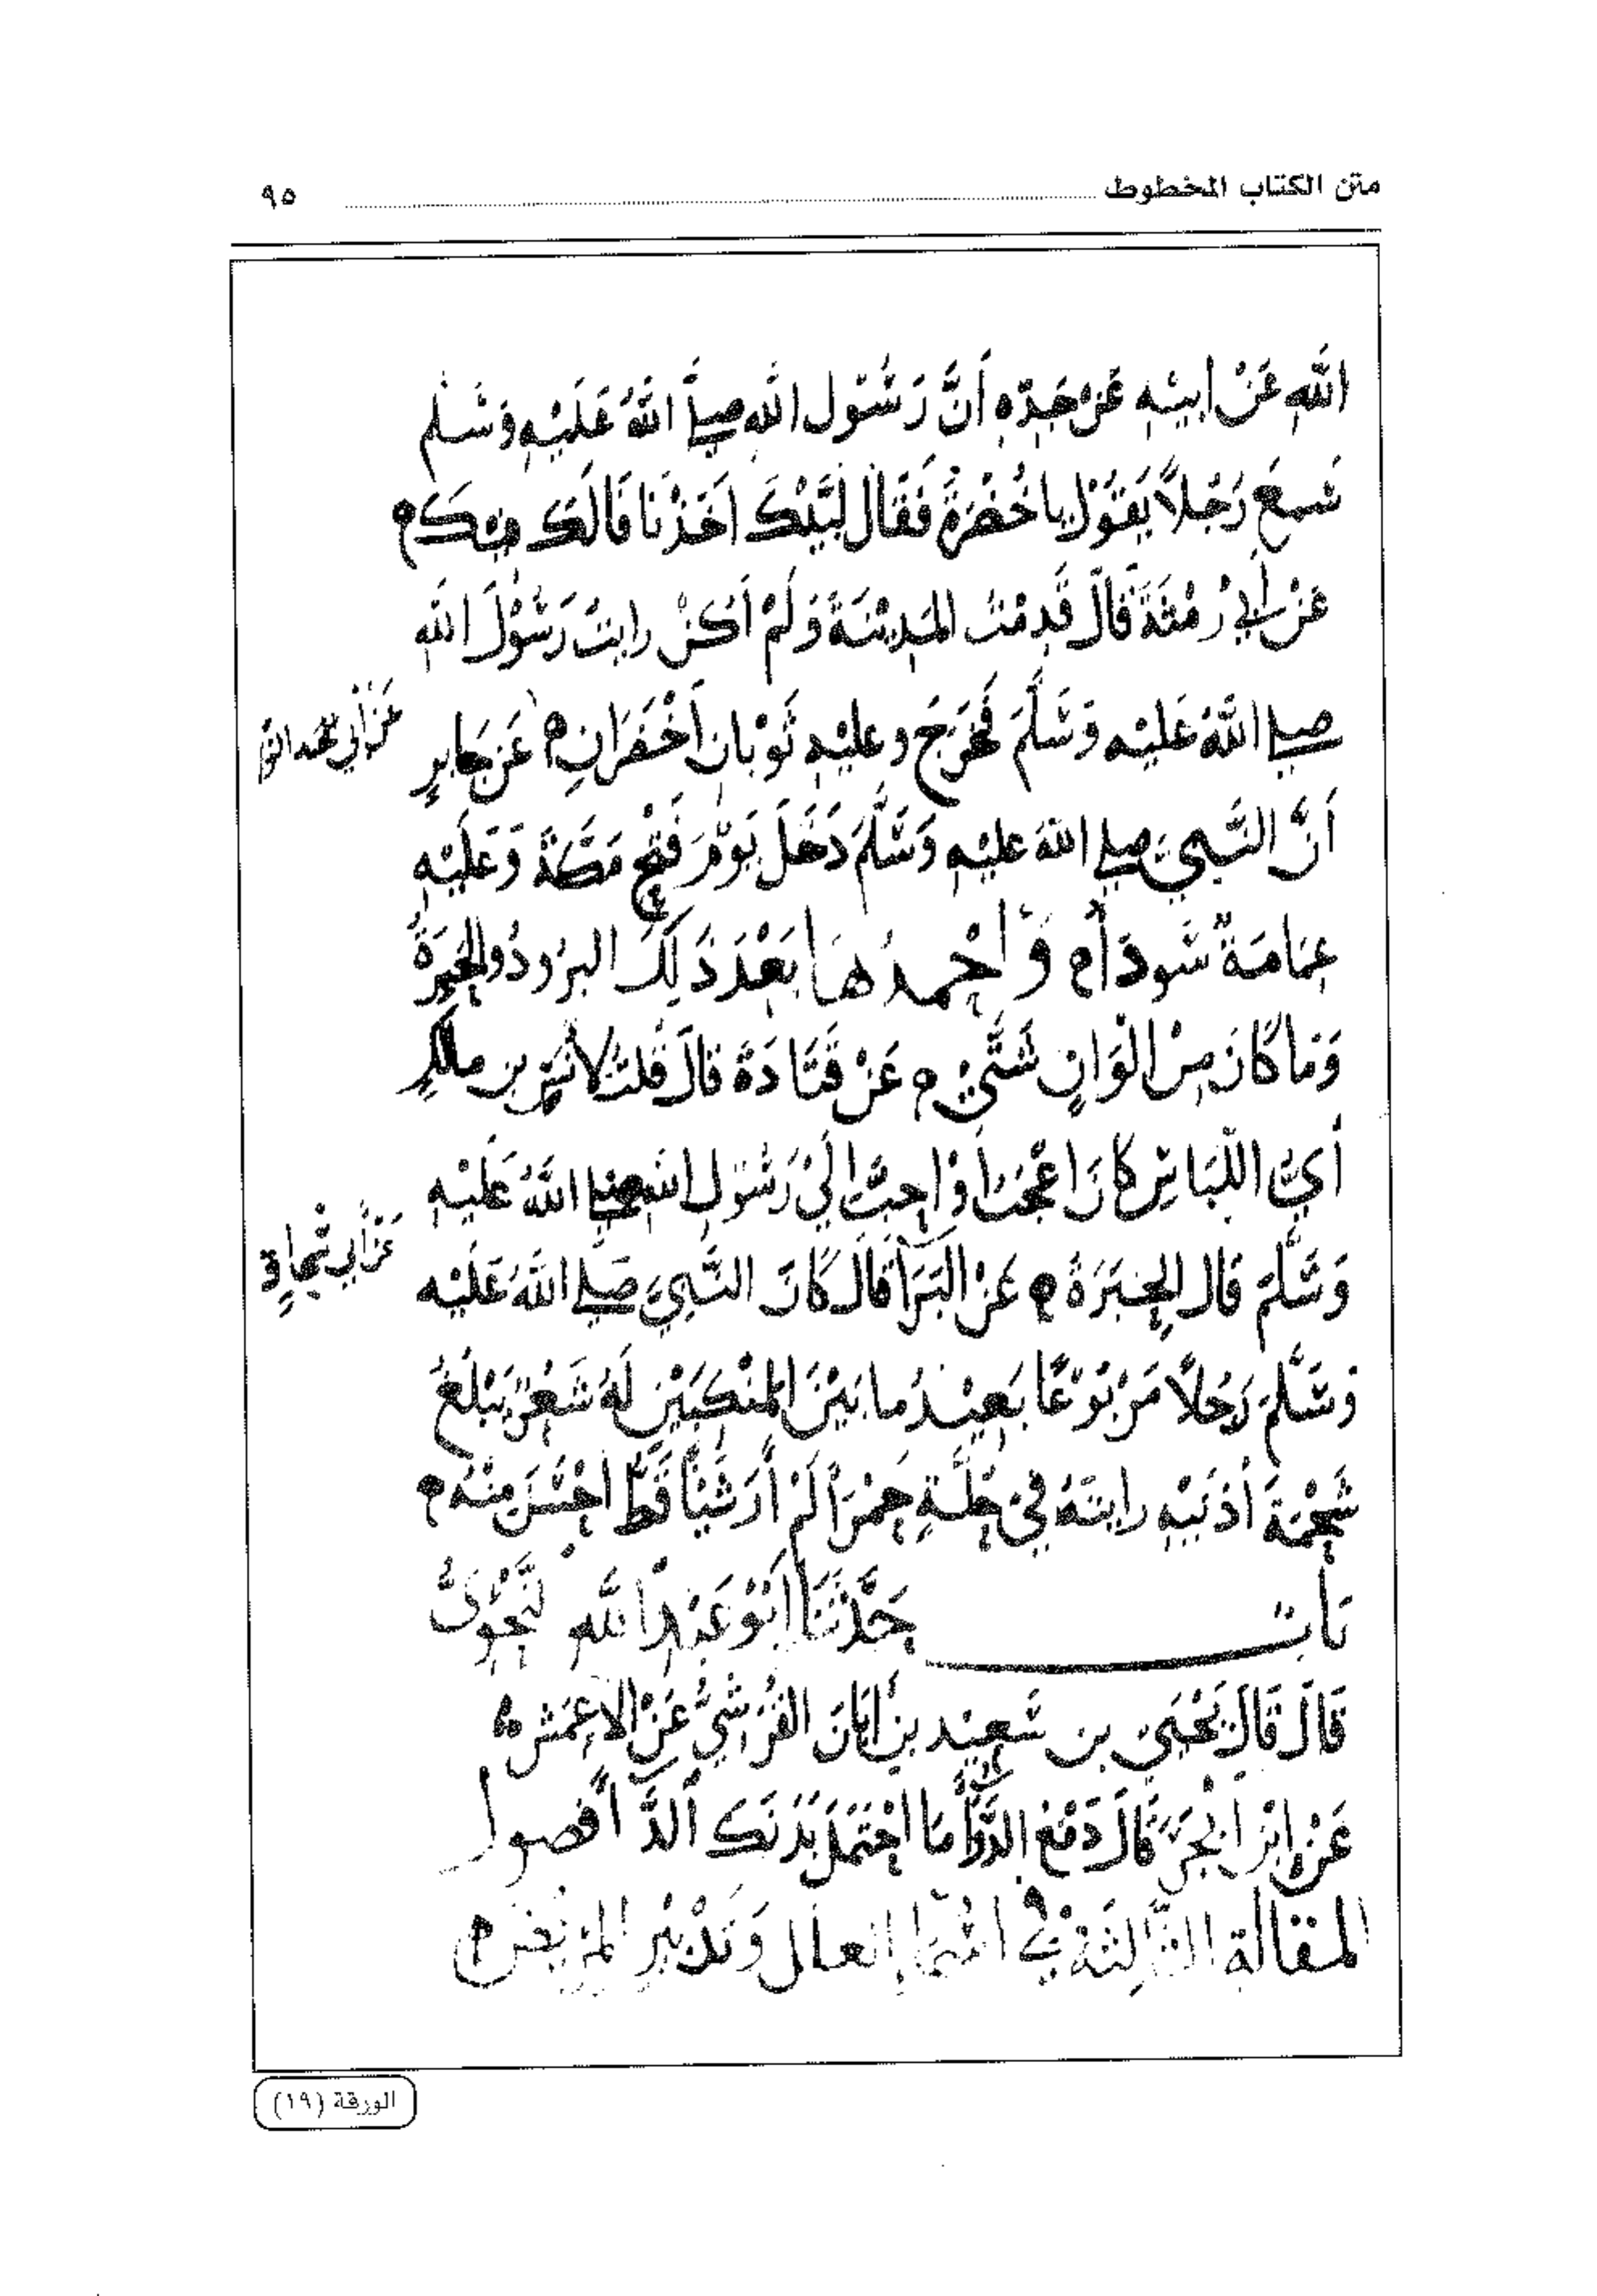 متن الكتاب المخطوط ٩٥
اللهِ عَنْ ابيْهِ عَنْ جَدّهِ أَنَّ رَسُول اللهِ صلى اللهُ عَلَيْهِ وَسَلم
سَمِعَ رَجُلاً يَقُوْل يا خُضْرَةُ فَقَالَ لَبَّيْكَ اَخَذْنَا فَالَكَ مِن
عَنْ أَبي رُمْثَةَ قَالَ قَدِمْتُ المَدِيْنَةَ وَلَمْ اَكُنْ رايتُ رَسُوْلَ الله
صلى اللهُ عَليْهِ وَسَلَّمَ فَخَرَجَ وعليْهِ ثَوْبان أَخْضَرَانِ عَن جَابرٍ
عَنْ أبي
أَنَّ النَّبيَّ صلى اللهُ عليْهِ وَسَلَّمَ دَخَلَ يَوْمَ فَتْحِ مَكَّةَ وَعَلَيْهِ
عِمَامَةٌ سَودَأ وَاَحْمدُهَا بَعْدَ ذَلِكَ البرُودُ والحِبَرَةُ
وَمَا كَانَ مِنْ الْوَانٍ شَتَّىْ عَنْ قَتَادَةَ قَالَ قُلتُ لأنَسِ بن مالكٍ
أيُّ اللِّبَاسِ كَانَ اعْجَبَ أوْ احبَّ الَىْ رَسُوْل الله صلى اللهُ عَلَيْهِ
وَسَلَّمَ قَال الحِبَرَةُ عَنْ البَرَأ قَالَ كَانَ النَّبيَّ صَلى اللهُ عَلَيْه
عَنْ أبي
وَسَلَّمَ رَجُلاً مَرْبُوْعًا بَعِيْدُ ما بَيْنَ المَنْكِبَيْنِ لَهُ شَعْرٌ يَبْلُغُ
شَحْمَةَ أُذنَيْهِ رايتهُ فيْ حُلَّةٍ حَمْرَأ لَمْ أرَ شَيْأً قَطُّ احْسَنَ مِنْهُ
بَابٌ حَدَّثَنَا اَبُوْ عَبْدِ اللهِ النَّحْوِىُّ
قَالَ قَالَ يَحْيَى بن سَعِيْد بن أبَانَ القُرَشيُّ عَنْ الاعْمَش
عَنْ ابن اَبْجَرَ قَالَ دَعْ الدَّوَأَ مَا احْتَمَلَ بَدَنَكَ الدَّأ فصول
المقالة الثَّالِثَة في العلل وَتَدْبيْر المَريْض
الورقة (١٩)